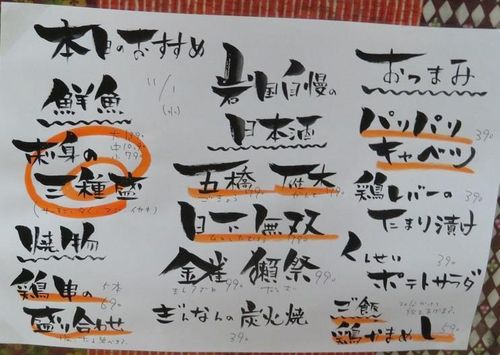 本日のおすすめ
11/1
(水)
鮮魚
刺身の
三種盛
焼物
鶏串の
5本
690
盛り合わせ
岩国自慢の
日本酒
五橋
雁木
日下無双
金雀
獺祭
990
ぎんなんの炭火焼
390
おつまみ
パリパリ
390
キャベツ
鶏レバーの
390
たまり漬け
くんせい
390
ポテトサラダ
ご飯
鶏かまめし
690